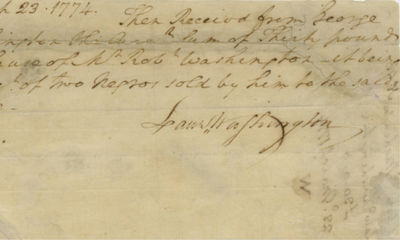 h 23. 1774.
Then Receiv'd from George
hington the sum of Thirty pounds
of Mr. Robt. Washington - it being
of two Negros sold by him to the said
Lawe. Washington